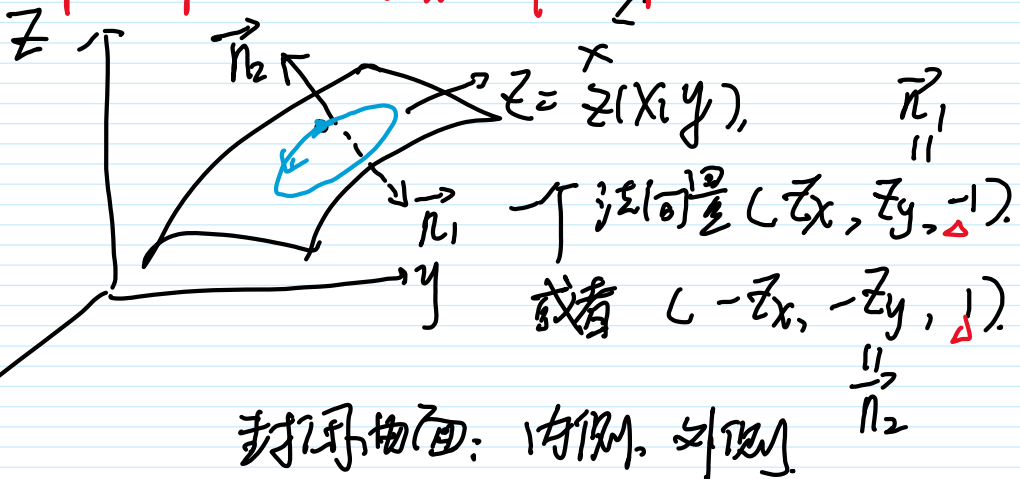 Z
n₂
z = z(x, y),
n₁
||
n₁
一个法向量 (Zx, Zy, -1).
y
或者 (-Zx, -Zy, 1).
||
n₂
封闭曲面: 内侧、外侧